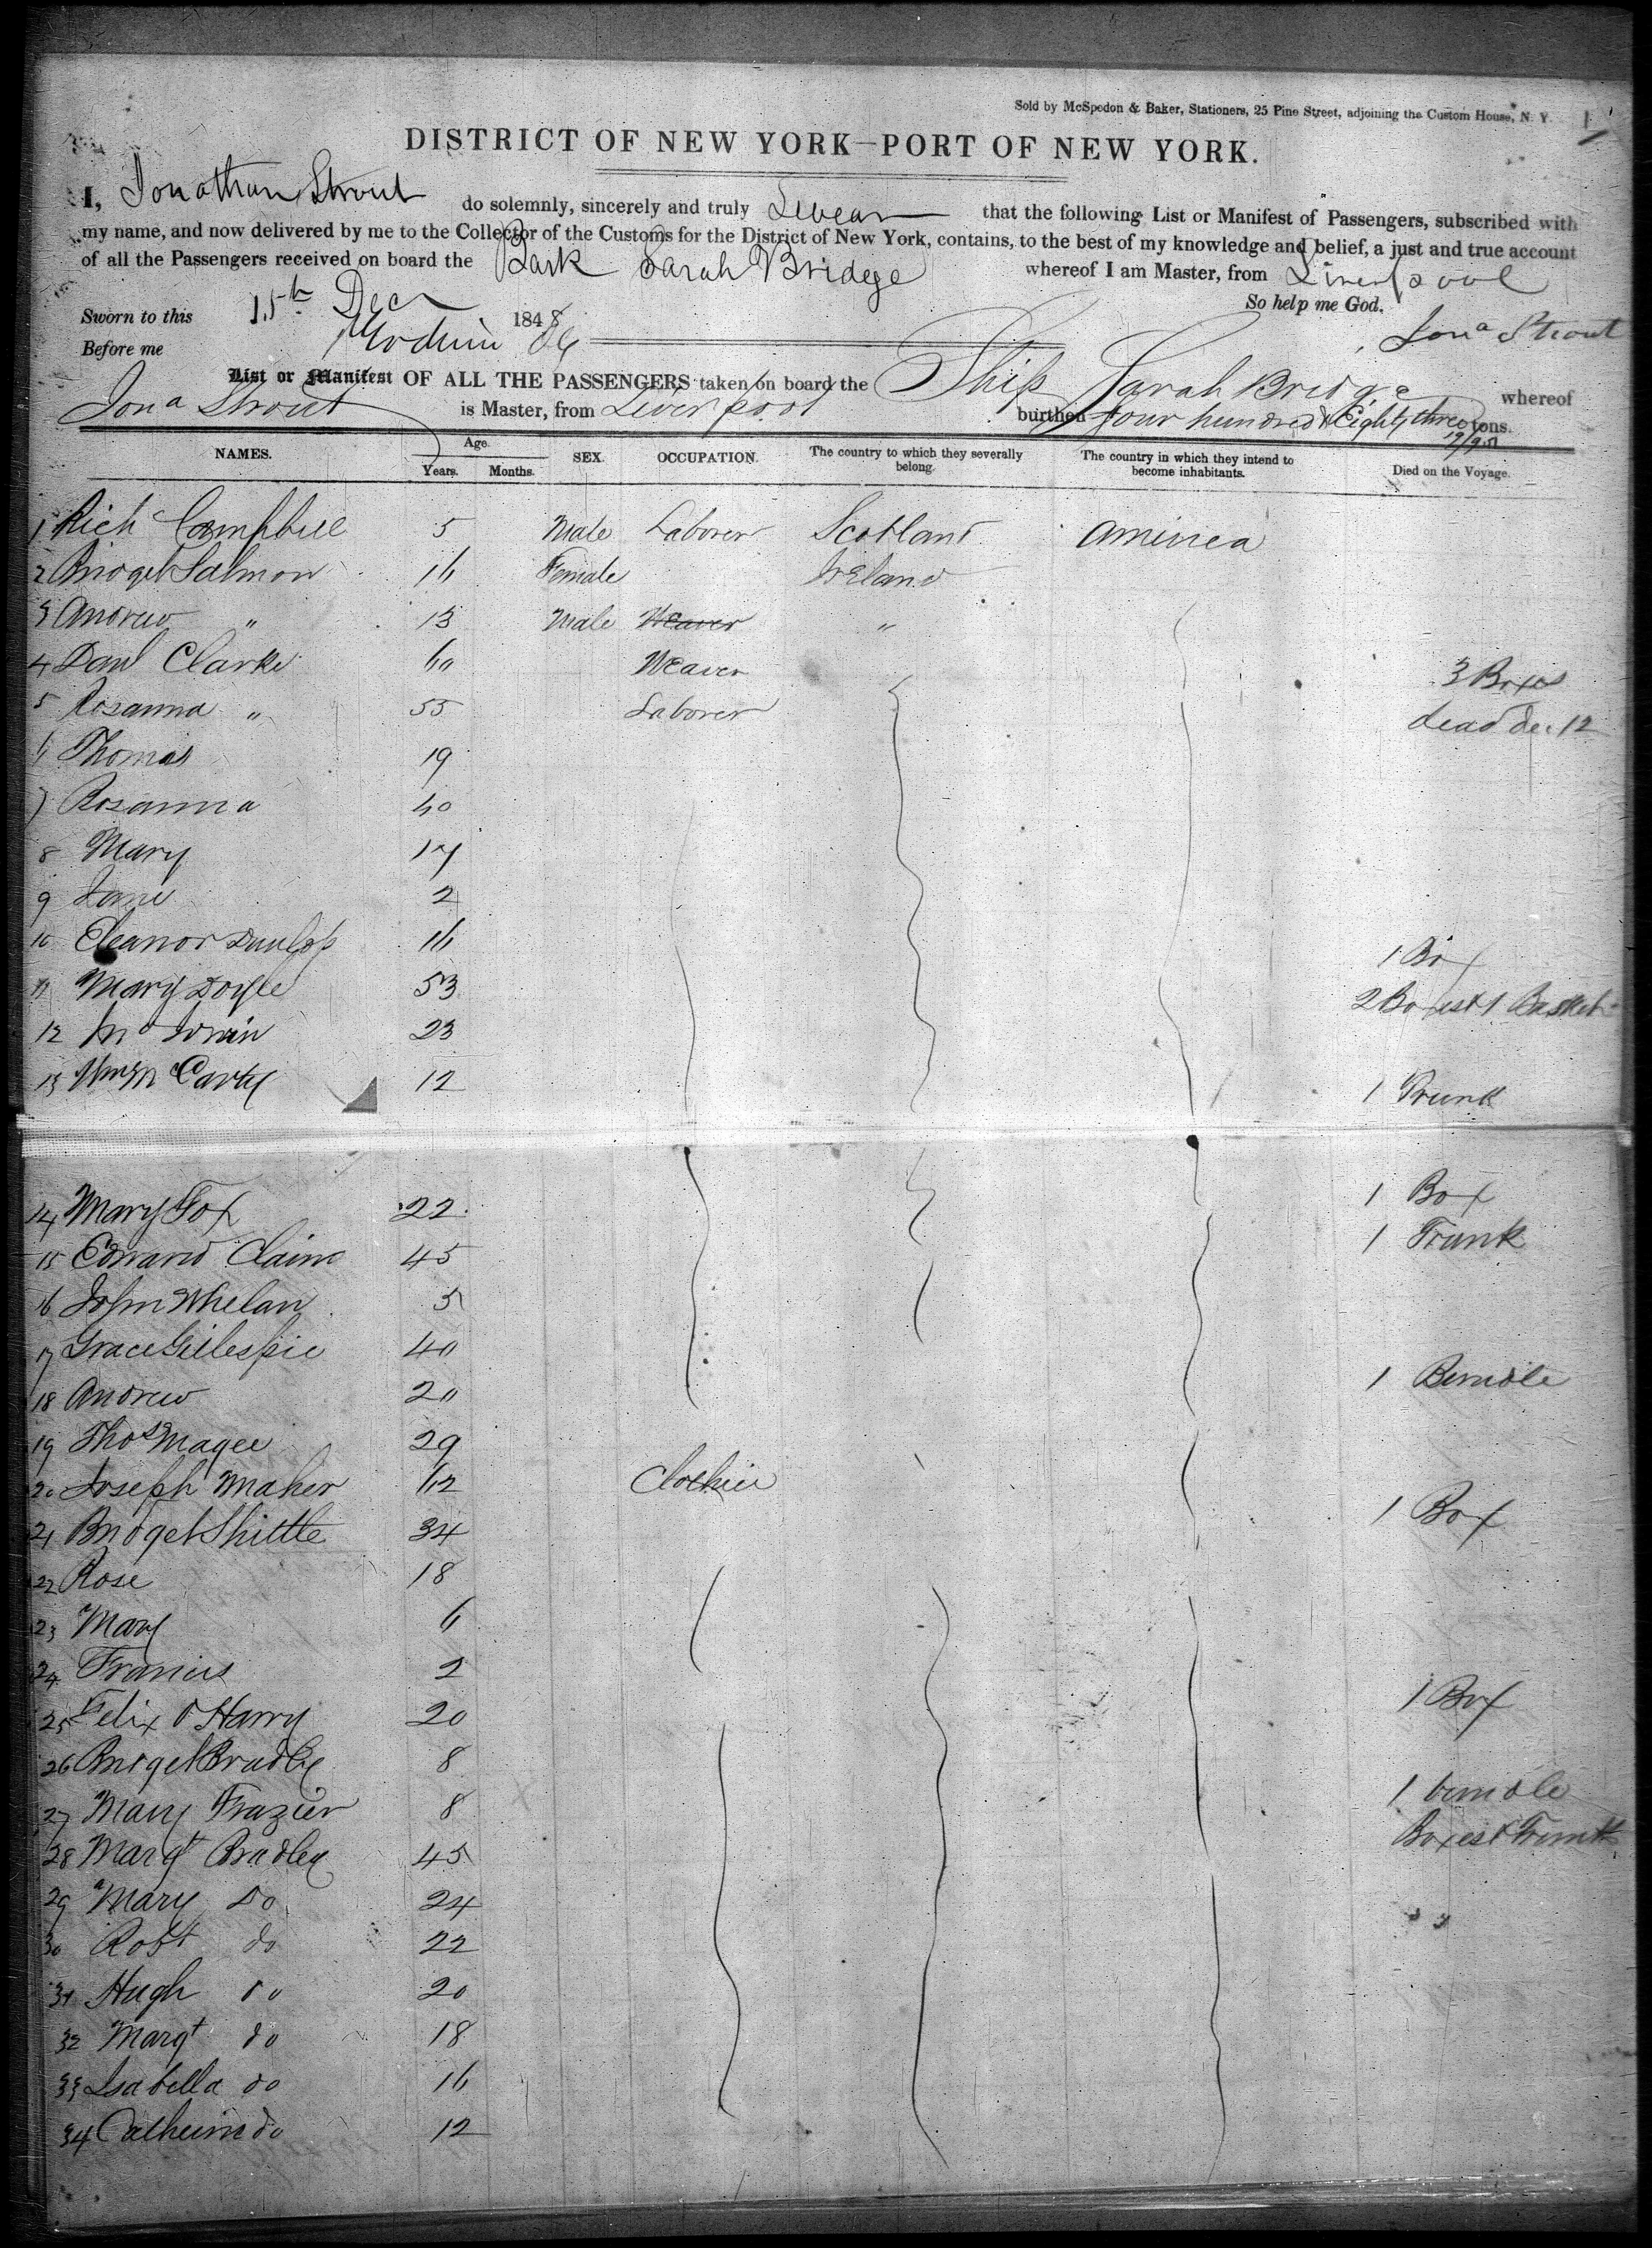 Sold by McSpedon & Baker, Stationers, 25 Pine Street, adjoining the Custom House, N. Y. 1
DISTRICT OF NEW YORK—PORT OF NEW YORK.
I, Jonathan Strout do solemnly, sincerely and truly Swear that the following List or Manifest of Passengers, subscribed with
my name, and now delivered by me to the Collector of the Customs for the District of New York, contains, to the best of my knowledge and belief, a just and true account
of all the Passengers received on board the Bark Sarah Bridge whereof I am Master, from Liverpool
So help me God.
Sworn to this 15th Dec 1848
Before me Jona Strout
List or Manifest OF ALL THE PASSENGERS taken on board the Ship Sarah Bridge whereof
Jona Strout is Master, from Liverpool burthen four hundred & Eighty three tons.
NAMES. Age. SEX. OCCUPATION. The country to which they severally belong. The country in which they intend to become inhabitants. Died on the Voyage.
Years. Months.
1 Rich Campbell 5 Male Laborer Scotland America
2 Bridget Salmon 16 Female Ireland
3 Andrew " 13 Male Weaver "
4 Danl Clarke 60 Weaver 3 Boxes
5 Rosanna " 55 Laborer dead Dec 12
6 Thomas 19
7 Rosanna
8 Mary 17
9 Jane 2
10 Eleanor Dunlop 16 1 Box
11 Mary Doyle 53 2 Boxes & 1 Basket
12 Jno Irwin 23
13 Wm McCarty 12 1 Trunk
14 Mary Fox 22 1 Box
15 Edward 45 1 Trunk
16 John Whelan 5
17 Grace Gillespie 40
18 Andrew 20 1 Bundle
19 Thos Magee 29
20 Joseph Maher 62
21 Bridget Shittle 34 1 Box
22 Rose 18
23 Mary 6
24 Francis 2
25 Felix O Harry 20 1 Box
26 Bridget Bradley 8
27 Mary Frazier 8 1 bundle
28 Margt Bradley 45 Boxes & Trunk
29 Mary Do 24
30 Robt do 22
31 Hugh do 20
32 Margt do 18
33 Isabella do 16
34 Catherine do 12